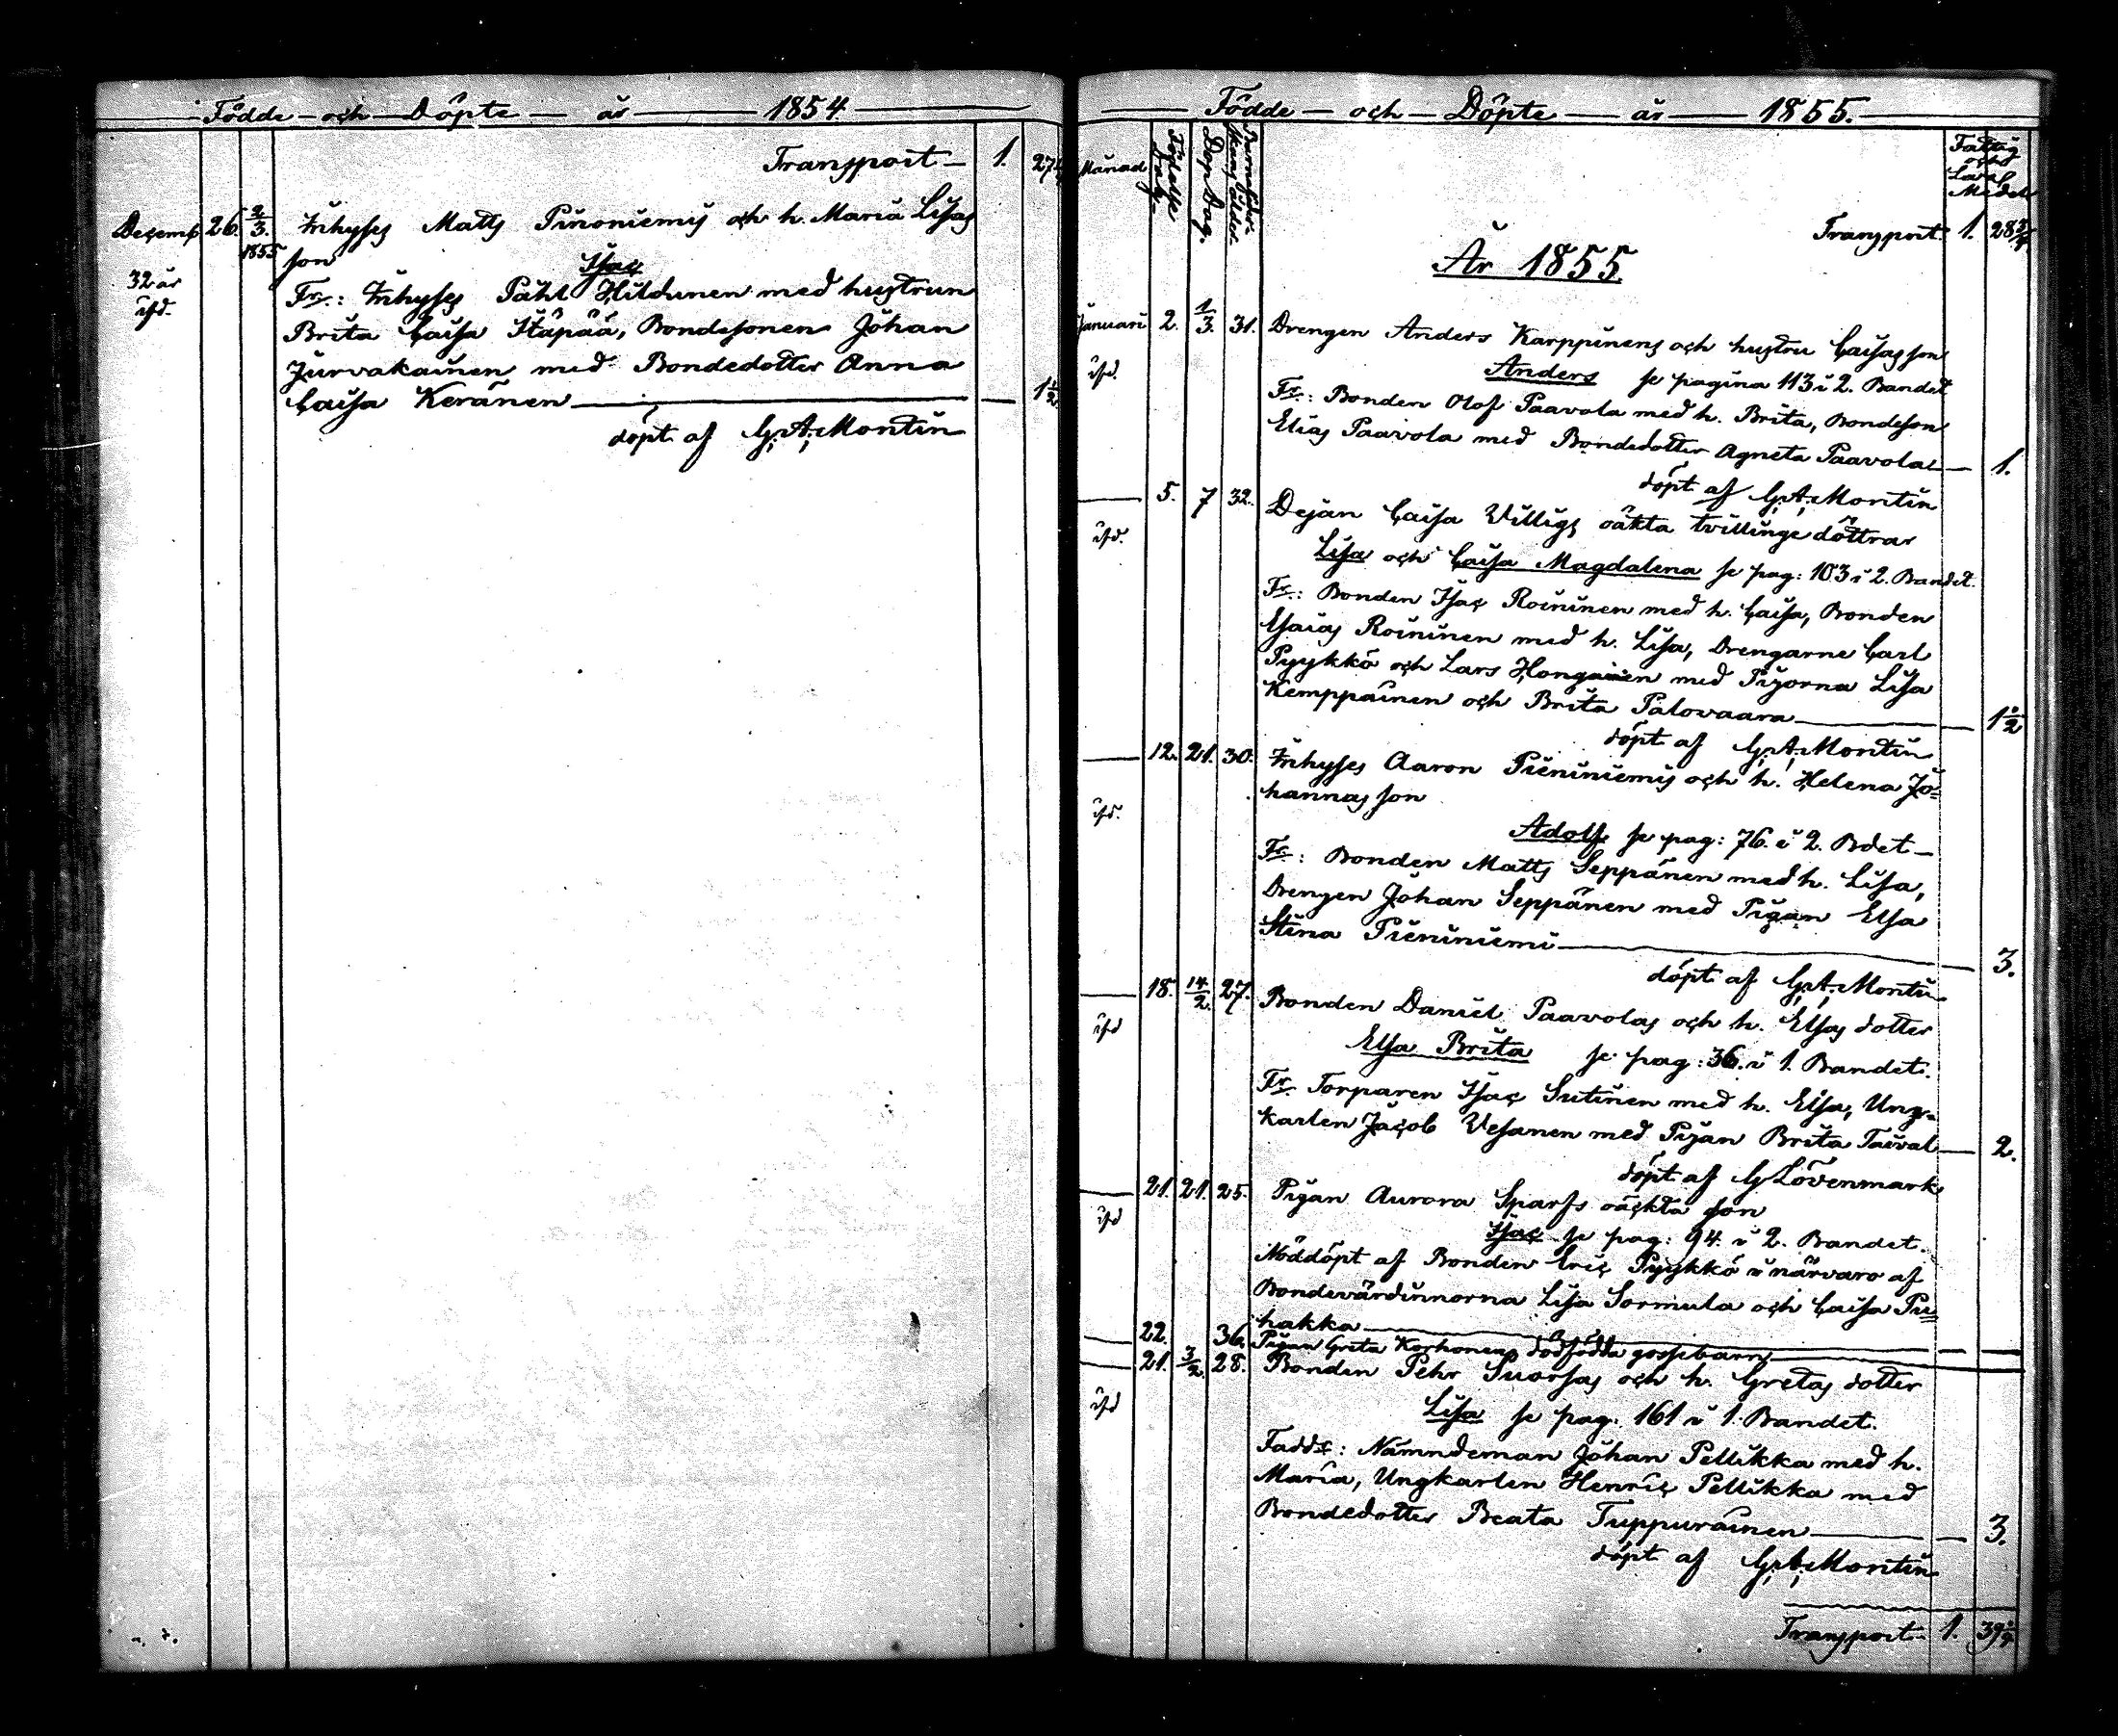 Födde och Döpte år 1854
Transport 1. 27
Decemb 26. 2/3. Inhyses Matts Pinoniemis och h. Maria Lisas
1855 son
Isac
32 år
ifd.
Fr: Inhyses Påhl Hildunen med hustrun
Brita Caisa Käpää, Bondesonen Johan
Jurvakainen med Bondedotter Anna
Caisa Keränen 1 1/2
döpt af G. A. Montin
Födde och Döpte år 1855.
Månad Födelse Dag. Dop Dag. Barnföderskans ålder. Fattig och Laval Medel
Transport 1. 28 3/4
År 1855.
Januari 2. 1/3. 31. Drengen Anders Karppinens och hustru Caisas son
ifd. Anders se pagina 113 i 2. Bandet
Fr: Bonden Olof Paavola med h. Brita, Bondeson
Elias Paavola med Bondedotter Agneta Paavola 1.
döpt af G. A. Montin
5. 7 32. Dejan Caisa Villigs oäkta tvillinge döttrar
ifd. Lisa och Caisa Magdalena se pag: 103 i 2. Bandet.
Fr: Bonden Isac Roininen med h. Caisa, Bonden
Esaias Roininen med h. Lisa, Drengarne Carl
Pyykkö och Lars Hongainen med Pigorna Lisa
Kemppainen och Brita Palovaara 1 1/2
döpt af G. A. Montin
12. 21. 30. Inhyses Aaron Pieniniemis och h. Helena Jo=
hannas son
ifd. Adolf se pag: 76. i 2. Bdet
Fr: Bonden Matts Seppänen med h. Lisa,
Drengen Johan Seppänen med Pigan Elsa
Stina Pieniniemi 3.
döpt af G. A. Montin
18. 14/2. 27. Bonden Daniel Paavolas och h. Elsas dotter
ifd Elsa Brita se pag: 36. i 1. Bandet.
Fr. Torparen Isac Sutinen med h. Elsa, Ung=
karlen Jacob Vesanen med Pijan Brita Taival 2.
döpt af G Lövenmark
21. 21. 25. Pigan Aurora Sparfs oäckta son
ifd Isac se pag: 94. i 2. Bandet.
Nöddöpt af Bonden Eric Pyykkö i närvaro af
Bondevärdinnorna Lisa Sormula och Caisa Pu=
hakka
22. 36. Pigan Greta Korhonens dödfödda gossebarn
21. 3/2. 28. Bonden Pehr Suorsas och h. Gretas dotter
ifd Lisa se pag: 161 i 1. Bandet.
Fadd: Nämndeman Johan Pellikka med h.
Maria, Ungkarlen Henric Pellikka med
Bondedotter Beata Tuppurainen 3.
döpt af G. A. Montin
Transport 1. 39